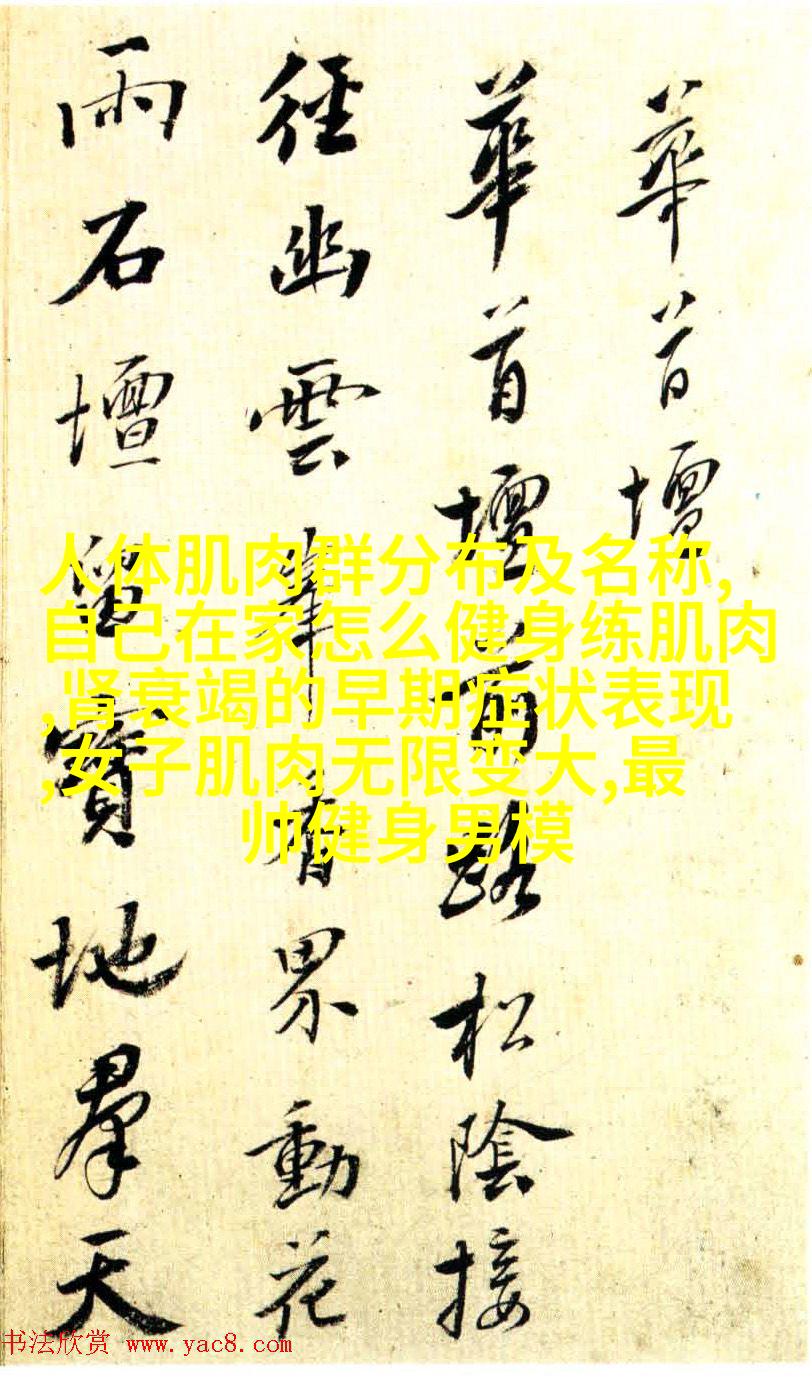 華首壇
華首壇前路松陰接
徑幽雲峯有界動花
雨石壇留寶地羣天
人体肌肉群分布及名称,
自己在家怎么健身练肌肉
,肾衰竭的早期症状表现
,女子肌肉无限变大,最
帅健身男模
书法欣赏 www.yac8.com